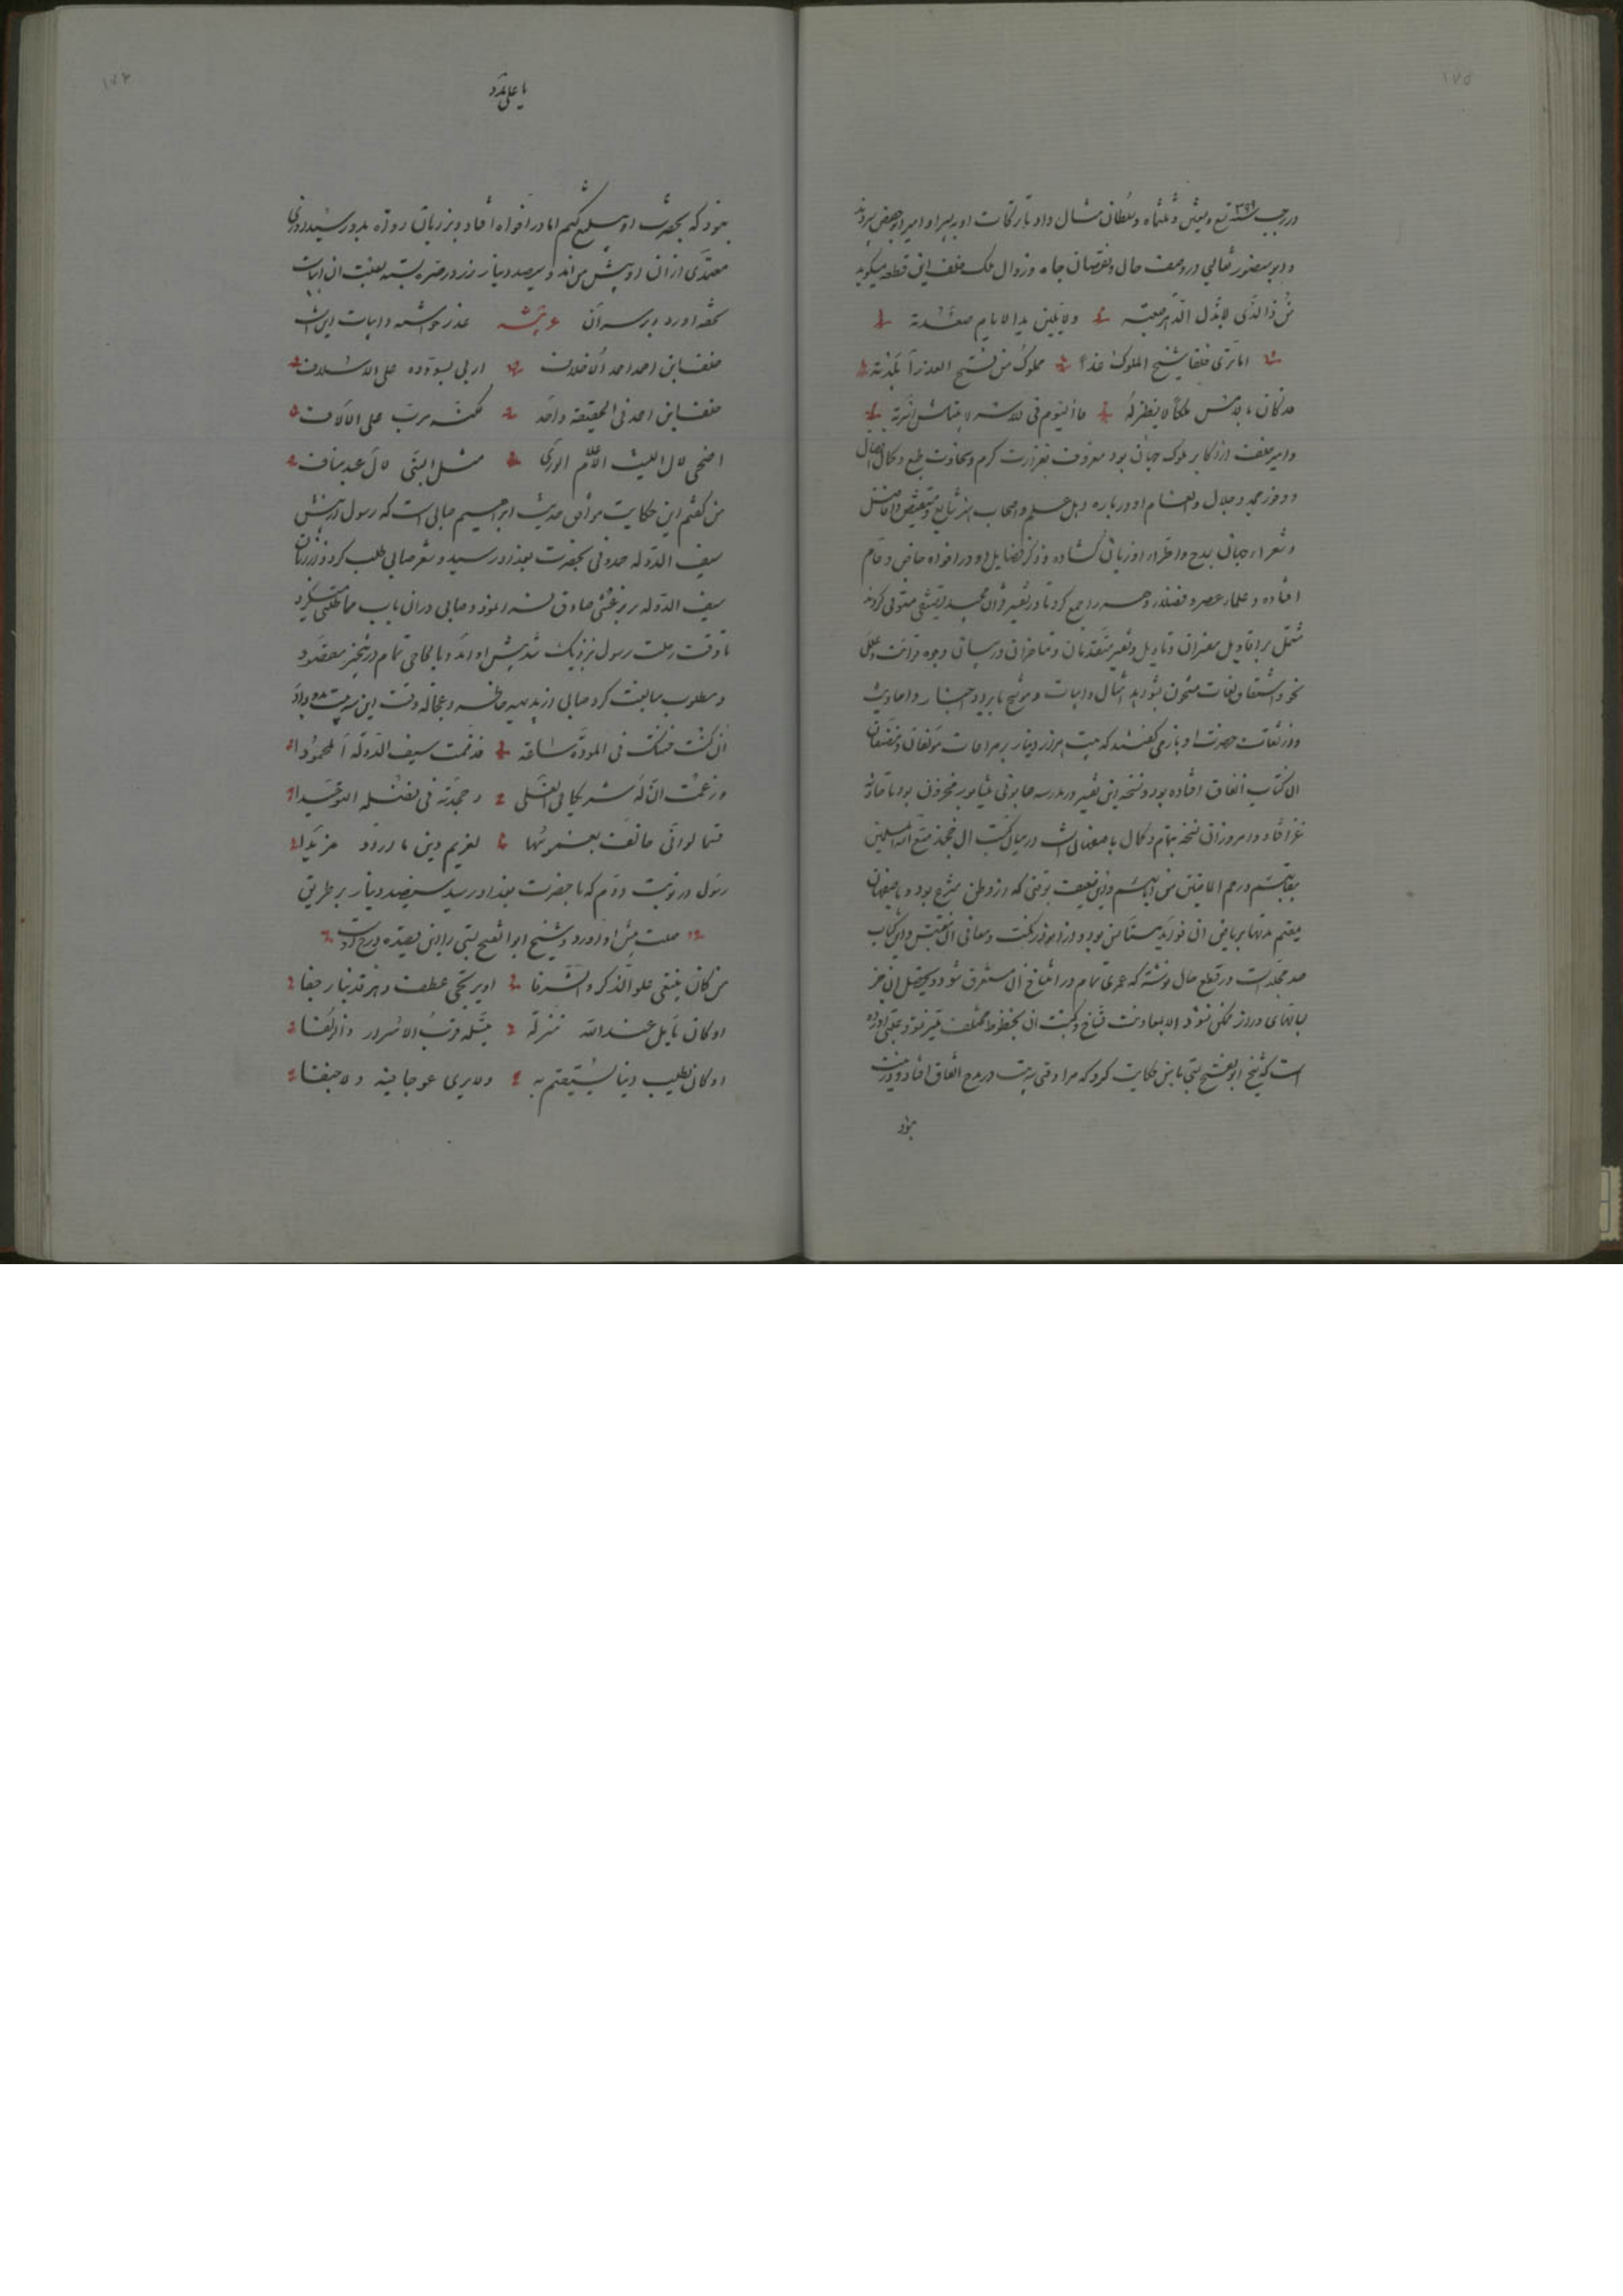 ۱۷۵
در رجب سنه ۳۹۹ تسع و تسعین و ثلثمائه و سلطان مثال داد تا ترکات او به پسر او امیر ابوحفص سپردند
و ابو منصور ثعالبی در وصف حال و نقصان جاه و زوال ملک خلف این قطعه میگوید
من ذا الذی لا یذل الدهر صعبته ولا یلین ید الایام صعدته
اما تری خلفا شیخ الملوک غدا مملوک من فتح العذراء بلدته
قد کان بالامس ملکا لا نظیر له فالیوم فی الاسر لا ینتاش اسرته
و امیر خلف از اکابر ملوک جهان بود معروف بغزارت کرم و سخاوت طبع و کمال افضال
و وفور مجد و جلال و انعام او درباره اهل علم و اصحاب هنر شایع و مستفیض و افاضل
و شعراء جهان بمدح و اطراء او زبان گشاده و ذکر فضایل او در افواه خاص و عام
افتاده و علماء عصر و فضلاء دهر را جمع کرد تا در تفسیر قران مجید تصنیفی مستوفی کردند
مشتمل بر اقاویل مفسران و تاویل و تفسیر متقدمان و متاخران در بیان وجوه قرائت و علل
نحو و اشتقاق لغات مشحون بشواهد امثال و ابیات و موشح بایراد اخبار و احادیث
و از ثقات حضرت او باز می گفتند که بیست هزار دینار بر مراعات مولفان و مصنفان
آن کتاب انفاق افتاده بود و نسخه این تفسیر در مدرسه صابونی نیشابور مخزون بود تا حادثه
غز افتاد و امروز آن نسخه بتمام و کمال باصفهان است در میان کتب آل خجند متع الله المسلمین
ببقایهم و رحم الماضین من آبائهم و این ضعیف بوقتی که از وطن منزعج بود و باصفهان
مقیم مدتها بر ریاض آن فواید مستانس بود و از انوار نکت و معانی آن مقتبس و این کتاب
صد مجلد است در قطع حال نوشته که عمری تمام در انتساخ آن مستغرق شود و تحصیل آن جز
بسالهای دراز ممکن نشود الا بمعاونت نساخ و کتبت آن بخطوط مختلف میسر نشود و عتبی آورده
است که شیخ ابوالفتح بستی با من حکایت کرد که مرا وقتی سه بیت در مدح اتفاق افتاد و در نیت
نبود
۱۷۶
یا علی مدد
نبود که بحضرت او تبلیغ کنیم اما در افواه افتاد و بر زبان رواة بدو رسید روزی
معتمدی از ان او پیش من آمد و سیصد دینار زر در صره بسته بصلت آن ابیات
تحفه آورد و بر سر آن عذر خواست و ابیات این است
خلف ابن احمد احمد الاخلاف اربی بسودده علی الاسلاف
خلف ابن احمد فی الحقیقة واحد لکنه مرب علی الآلاف
اضحی لآل اللیث اعلام الوری مثل النبی لآل عبد مناف
من گفتم این حکایت موافق حدیث ابراهیم صابی است که رسول از پیش
سیف الدوله حمدونی بحضرت بغداد رسید و شعر صابی طلب کرد و از زبان
سیف الدوله بر رغبتی صادق شعر او نمود و صابی در آن باب مماطلتی میکرد
تا وقت رحلت رسول نزدیک شد پیش او آمد و بالحاحی تمام در تنجیز مقصود
و مطلوب مبالغت کرد صابی از بدیهه خاطر و عجاله وقت این سه بیت بدو داد
ان کنت خنتک فی المودة ساعة فذممت سیف الدولة المحمودا
وزعمت ان له شریکا فی العلی وجحدته فی فضله التوحیدا
قسما لو انی حالف بغموسها لغریم دین ما اراد مزیدا
رسول در نوبت دوم که با حضرت بغداد رسید سیصد دینار بر طریق
صلت پیش او آورد و شیخ ابوالفتح بستی را این قصیده در مدح اوست
من کان یبغی علو الذکر والشرفا او یرتجی عطف دهر قد نبا و جفا
او کان یامل عند الله منزلة تنیله قرب الابرار والزلفا
او کان یطلب دینا یستقیم به ولا یری عوجا فیه ولا جنفا